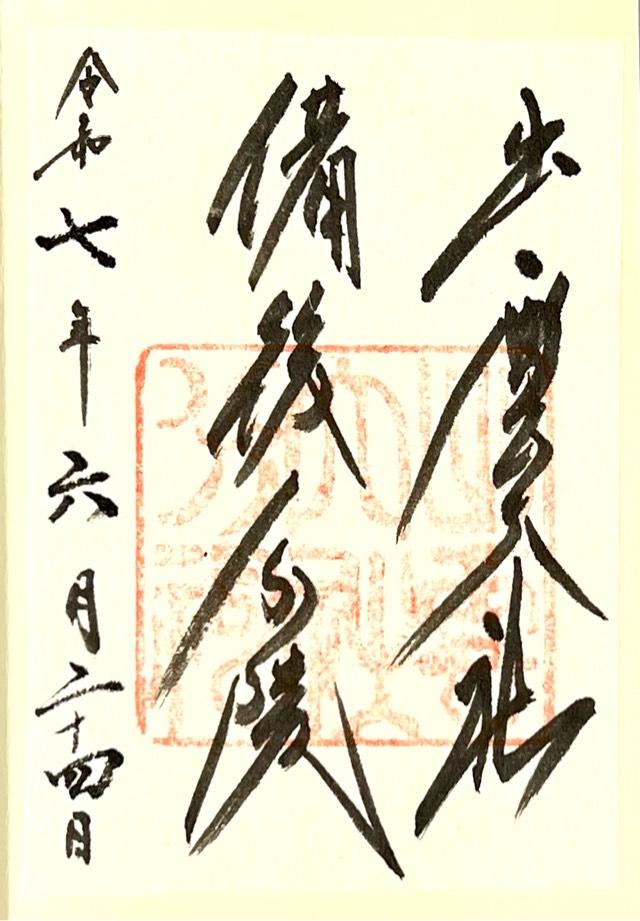 出雲大社
備後分院
令和七年六月二十四日